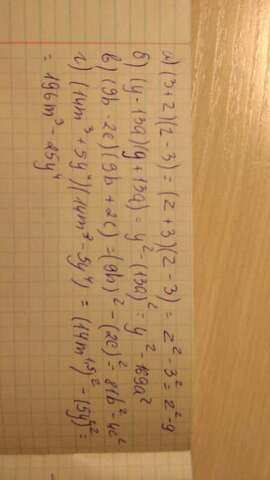 а) (3+2)(2-3) = (2+3)(2-3) = 2² 3² = 2² - 9
б) (y-13a)(y+13a) = y² - (13a)² = y² - 169a²
в) (9b - 2c)(9b + 2c) = (9b)² - (2c)² = 81b² - 4c²
г) (14m³ + 5y⁴)(14m³ - 5y⁴) = (14m¹·⁵)² - (5y²)² =
= 196m³ - 25y⁴